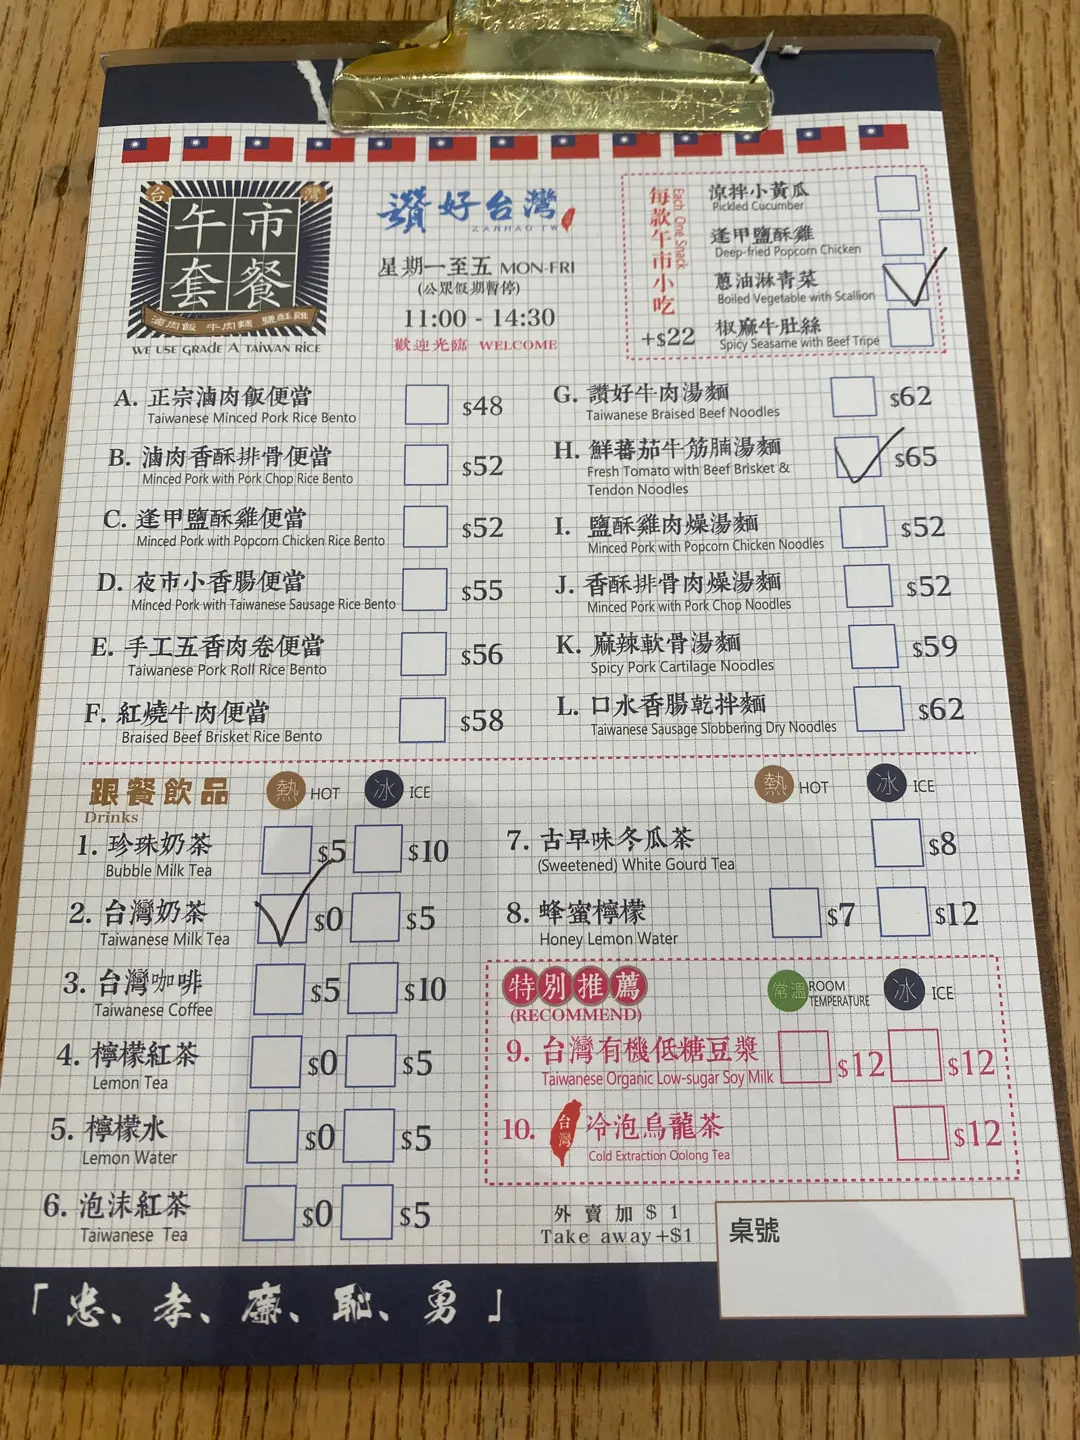 台灣
午市
套餐
滷肉飯 牛肉麵 鹽酥雞
WE USE GRADE A TAIWAN RICE
讚好台灣
ZANHAO TW
星期一至五 MON-FRI
(公眾假期暫停)
11:00 - 14:30
歡迎光臨 WELCOME
每款午市小吃
Each One Snack
+$22
涼拌小黃瓜
Pickled Cucumber
逢甲鹽酥雞
Deep-fried Popcorn Chicken
蔥油淋青菜
Boiled Vegetable with Scallion
椒麻牛肚絲
Spicy Seasame with Beef Tripe
A. 正宗滷肉飯便當 $48
Taiwanese Minced Pork Rice Bento
B. 滷肉香酥排骨便當 $52
Minced Pork with Pork Chop Rice Bento
C. 逢甲鹽酥雞便當 $52
Minced Pork with Popcorn Chicken Rice Bento
D. 夜市小香腸便當 $55
Minced Pork with Taiwanese Sausage Rice Bento
E. 手工五香肉卷便當 $56
Taiwanese Pork Roll Rice Bento
F. 紅燒牛肉便當 $58
Braised Beef Brisket Rice Bento
G. 讚好牛肉湯麵 $62
Taiwanese Braised Beef Noodles
H. 鮮蕃茄牛筋腩湯麵 $65
Fresh Tomato with Beef Brisket &
Tendon Noodles
I. 鹽酥雞肉燥湯麵 $52
Minced Pork with Popcorn Chicken Noodles
J. 香酥排骨肉燥湯麵 $52
Minced Pork with Pork Chop Noodles
K. 麻辣軟骨湯麵 $59
Spicy Pork Cartilage Noodles
L. 口水香腸乾拌麵 $62
Taiwanese Sausage Slobbering Dry Noodles
跟餐飲品 熱 HOT 冰 ICE
Drinks
1. 珍珠奶茶 $5 $10
Bubble Milk Tea
2. 台灣奶茶 $0 $5
Taiwanese Milk Tea
3. 台灣咖啡 $5 $10
Taiwanese Coffee
4. 檸檬紅茶 $0 $5
Lemon Tea
5. 檸檬水 $0 $5
Lemon Water
6. 泡沫紅茶 $0 $5
Taiwanese Tea
熱 HOT 冰 ICE
7. 古早味冬瓜茶 $8
(Sweetened) White Gourd Tea
8. 蜂蜜檸檬 $7 $12
Honey Lemon Water
特別推薦 常溫 ROOM TEMPERATURE 冰 ICE
(RECOMMEND)
9. 台灣有機低糖豆漿 $12 $12
Taiwanese Organic Low-sugar Soy Milk
10. 台灣 冷泡烏龍茶 $12
Cold Extraction Oolong Tea
外賣加 $ 1
Take away +$1
桌號
「忠、孝、廉、恥、勇」